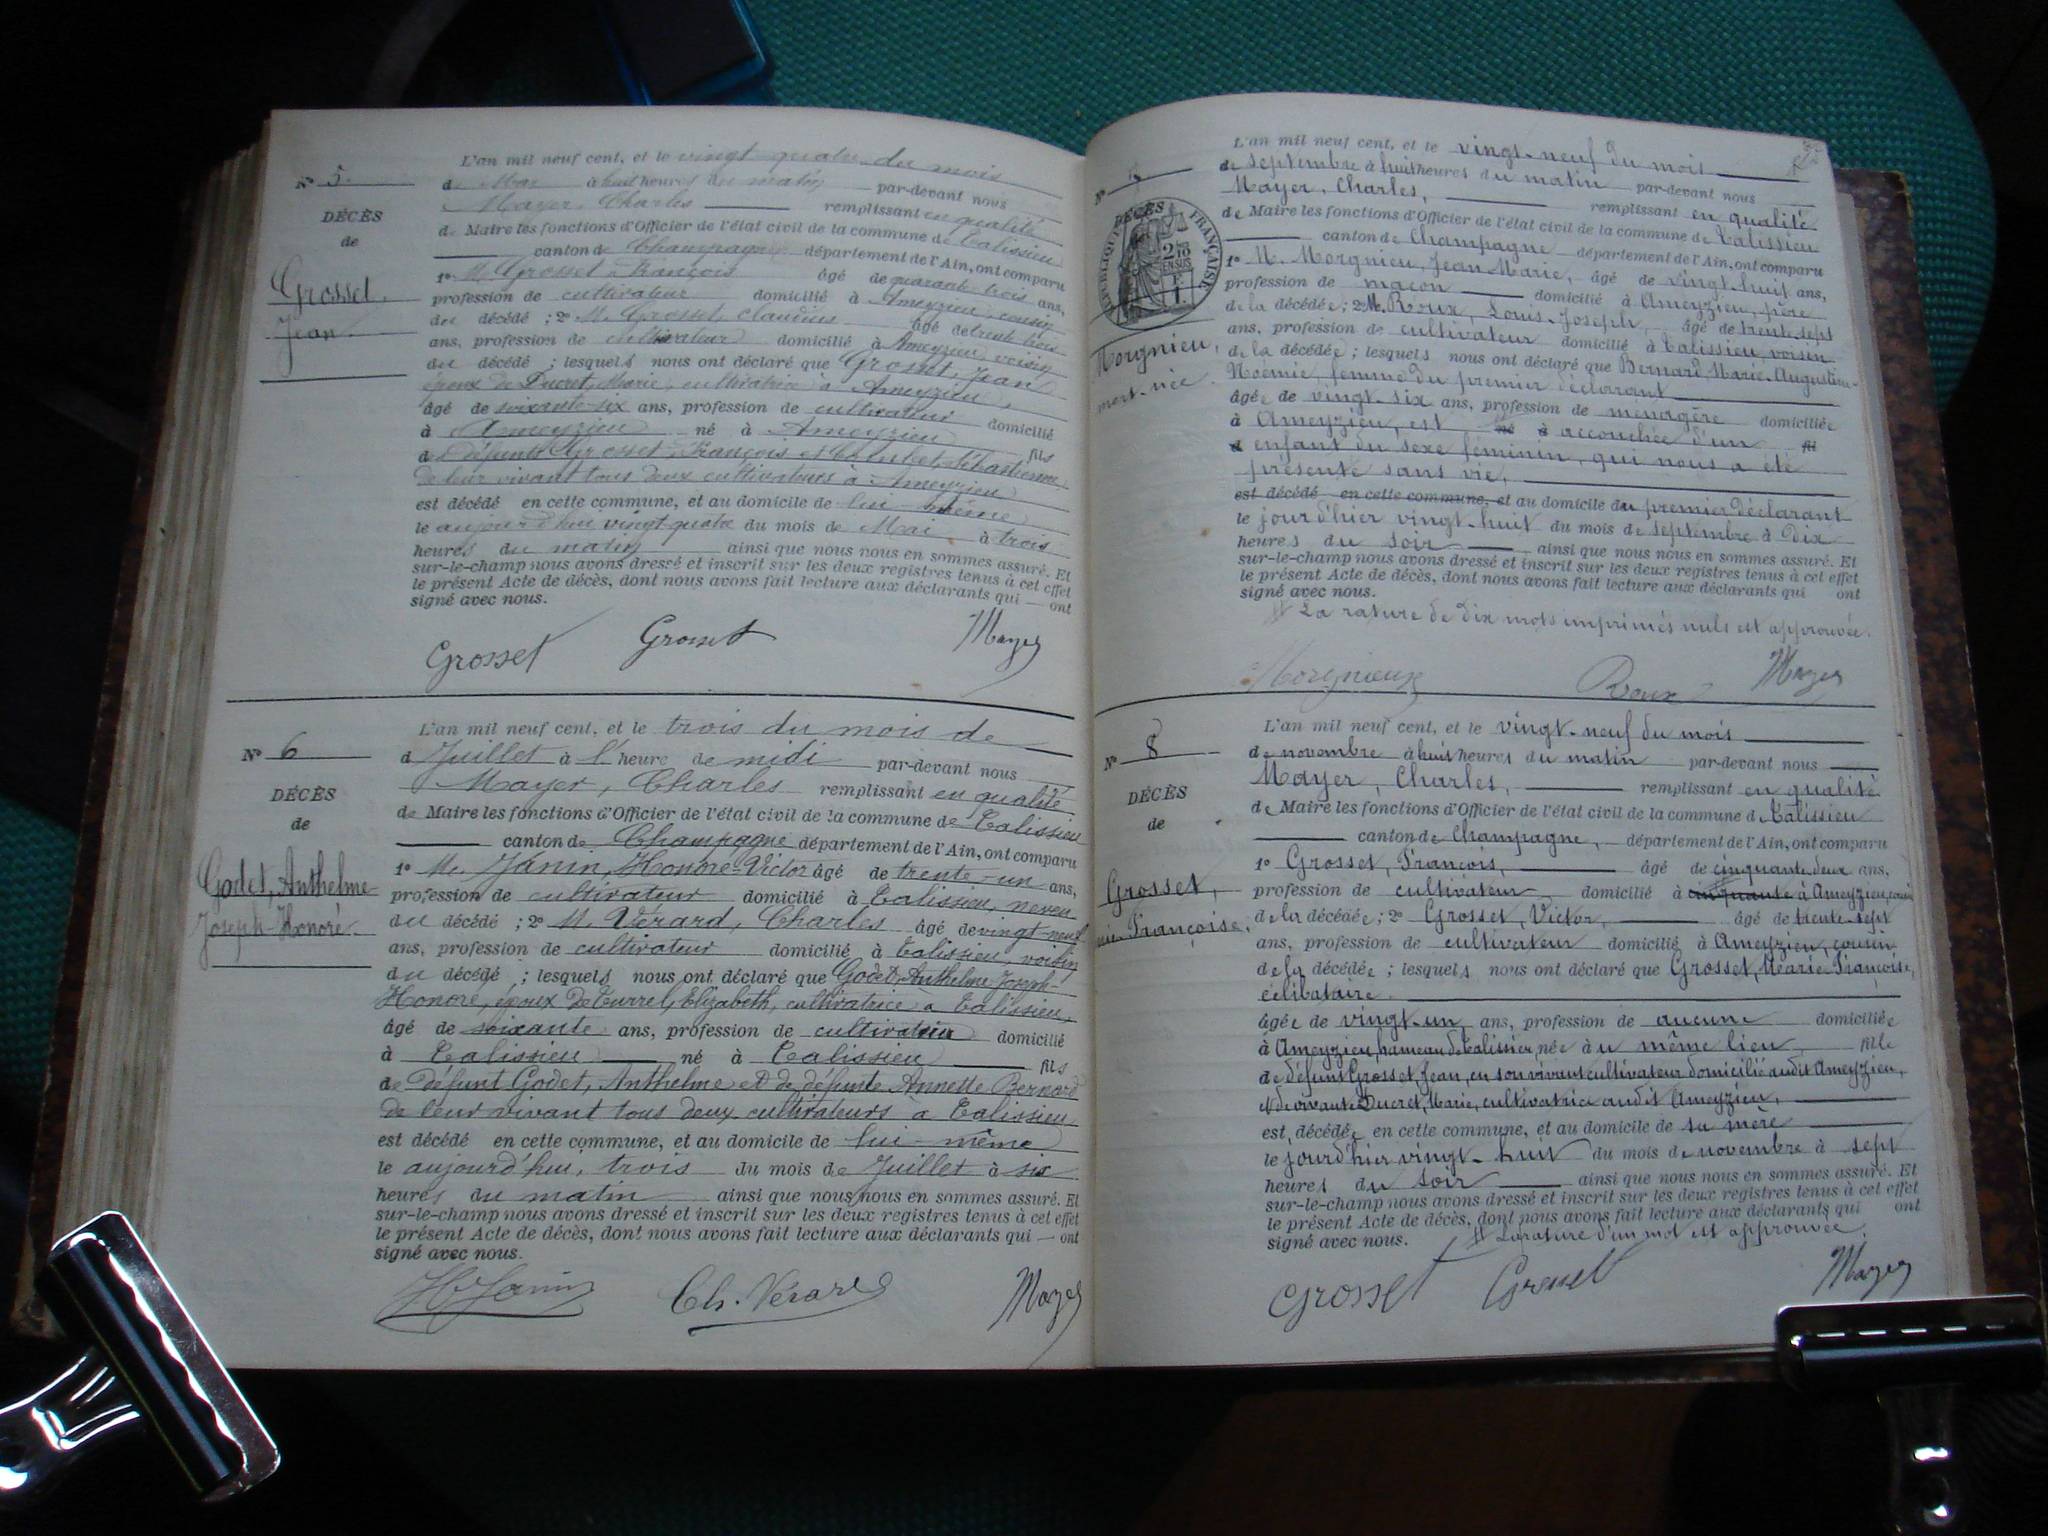 L'an mil neuf cent, et le vingt quatre du mois
N° 5
de Mai à huit heures du matin par-devant nous
Mayer, Charles remplissant en qualité
DÉCÈS
de Maire les fonctions d'Officier de l'état civil de la commune de Talissieu
de
canton de Champagne département de l'Ain, ont comparu
1° M. Grosset, François âgé de quarante-trois ans,
Grosset,
profession de cultivateur domicilié à Ameyzieu, cousin
Jean
du décédé ; 2° M. Grosset, Claudius âgé de trente trois
ans, profession de cultivateur domicilié à Ameyzieu, voisin
du décédé ; lesquels nous ont déclaré que Grosset, Jean
époux de Ducret, Marie, cultivatrice à Ameyzieu,
âgé de soixante-six ans, profession de cultivateur domicilié
à Ameyzieu né à Ameyzieu
de défunts Grosset, François et Sébastienne fils
de leur vivant tous deux cultivateurs à Ameyzieu
est décédé en cette commune, et au domicile de lui-même
le aujourd'hui vingt-quatre du mois de Mai à trois
heures du matin ainsi que nous nous en sommes assuré. Et
sur-le-champ nous avons dressé et inscrit sur les deux registres tenus à cet effet
le présent Acte de décès, dont nous avons fait lecture aux déclarants qui ont
signé avec nous.
Grosset Grosset Mayer
L'an mil neuf cent, et le trois du mois de
N° 6
d Juillet à l'heure de midi par-devant nous
Mayer, Charles remplissant en qualité
DÉCÈS
de Maire les fonctions d'Officier de l'état civil de la commune de Talissieu
de
canton de Champagne département de l'Ain, ont comparu
1° M. Janin, Honoré-Victor âgé de trente-un ans,
Godet, Anthelme-
profession de cultivateur domicilié à Talissieu, neveu
Joseph-Honoré.
du décédé ; 2° M. Vérard, Charles âgé de vingt-neuf
ans, profession de cultivateur domicilié à Talissieu, voisin
du décédé ; lesquels nous ont déclaré que Godet, Anthelme Joseph-
Honoré, époux de Turrel, Elizabeth, cultivatrice à Talissieu,
âgé de soixante ans, profession de cultivateur domicilié
à Talissieu né à Talissieu fils
de défunt Godet, Anthelme et de défunte Annette Bernard
de leur vivant tous deux cultivateurs à Talissieu
est décédé en cette commune, et au domicile de lui-même
le aujourd'hui, trois du mois de Juillet à six
heures du matin ainsi que nous nous en sommes assuré. Et
sur-le-champ nous avons dressé et inscrit sur les deux registres tenus à cet effet
le présent Acte de décès, dont nous avons fait lecture aux déclarants qui — ont
signé avec nous.
H Janin Ch. Vérard Mayer
L'an mil neuf cent, et le vingt-neuf du mois
N°
de septembre à huit heures du matin par-devant nous
Mayer, Charles, remplissant en qualité
DÉCÈS
RÉPUBLIQUE FRANÇAISE
2/10 EN SUS
de Maire les fonctions d'Officier de l'état civil de la commune de Talissieu
canton de Champagne département de l'Ain, ont comparu
1° M. Morgnieu, Jean Marie, âgé de vingt-huit ans,
profession de maçon domicilié à Ameyzieu, père
de la décédée ; 2° M. Roux, Louis-Joseph, âgé de trente-sept
Morgnieu,
ans, profession de cultivateur domicilié à Talissieu, voisin
mort-née.
de la décédée ; lesquels nous ont déclaré que Bernard, Marie-Augustine-
Noémie, femme du premier déclarant
âgée de vingt-six ans, profession de ménagère domiciliée
à Ameyzieu, est né à accouchée d'un fil
d enfant du sexe féminin, qui nous a été
présenté sans vie,
est décédé en cette commune, et au domicile du premier déclarant
le jour d'hier vingt-huit du mois de septembre à dix
heures du soir ainsi que nous nous en sommes assuré. Et
sur-le-champ nous avons dressé et inscrit sur les deux registres tenus à cet effet
le présent Acte de décès, dont nous avons fait lecture aux déclarants qui ont
signé avec nous.
La rature de dix mots imprimés nuls est approuvée.
Morgnieux Roux Mayer
L'an mil neuf cent, et le vingt-neuf du mois
N° 8
de novembre à huit heures du matin par-devant nous
Mayer, Charles, remplissant en qualité
DÉCÈS
de Maire les fonctions d'Officier de l'état civil de la commune d Talissieu
de
canton de Champagne, département de l'Ain, ont comparu
1° Grosset, François, âgé de cinquante deux ans,
Grosset,
profession de cultivateur domicilié à cinquante à Ameyzieu, cousin
Françoise.
de la décédée ; 2° Grosset, Victor, âgé de trente-sept
ans, profession de cultivateur domicilié à Ameyzieu, cousin
de la décédée ; lesquels nous ont déclaré que Grosset, Marie Françoise,
célibataire.
âgée de vingt-un ans, profession de aucune domiciliée
à Ameyzieu, hameau de Talissieu, née au même lieu, fille
de défunt Grosset, Jean, en son vivant cultivateur domicilié audit Ameyzieu,
et de vivante Ducret, Marie, cultivatrice audit Ameyzieu,
est décédée en cette commune, et au domicile de sa mère
le jour d'hier vingt-huit du mois de novembre à sept
heures du soir ainsi que nous nous en sommes assuré. Et
sur-le-champ nous avons dressé et inscrit sur les deux registres tenus à cet effet
le présent Acte de décès, dont nous avons fait lecture aux déclarants qui ont
signé avec nous. La rature d'un mot est approuvée.
Grosset Grosset Mayer